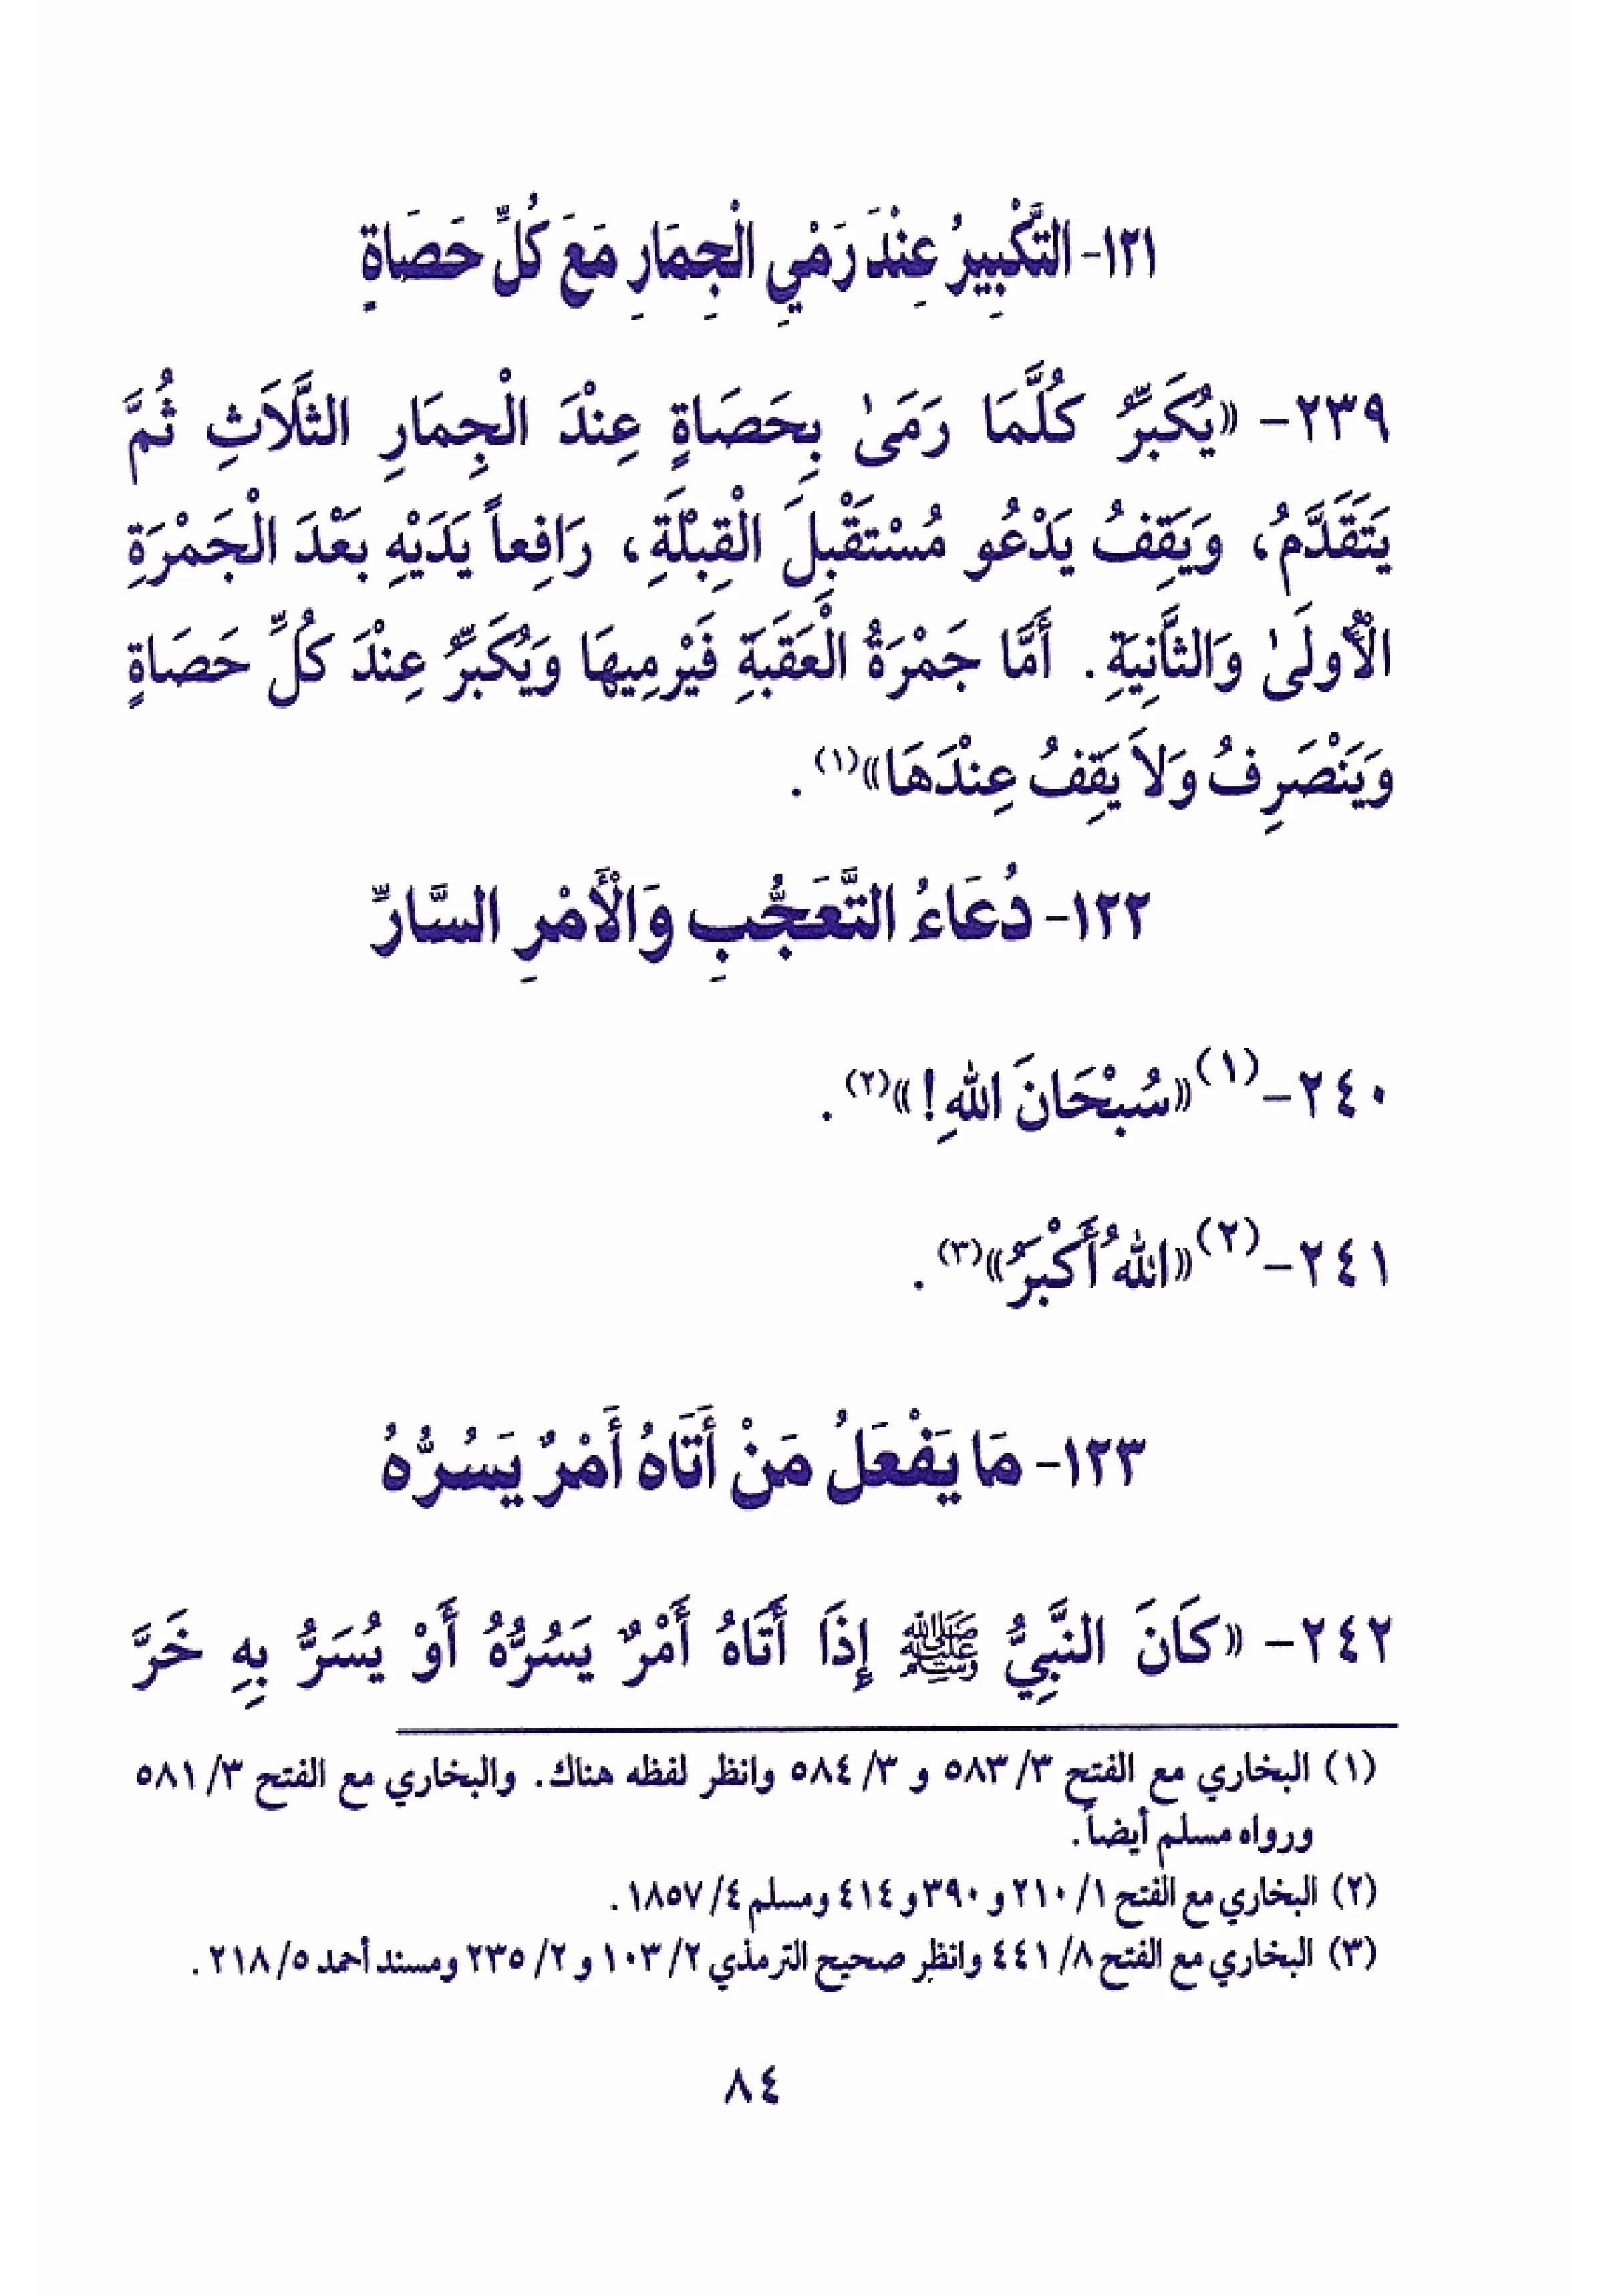 ١٢١- التَّكْبِيرُ عِنْدَ رَمْيِ الْجِمَارِ مَعَ كُلِّ حَصَاةٍ
٢٣٩- «يُكَبِّرُ كُلَّمَا رَمَىٰ بِحَصَاةٍ عِنْدَ الْجِمَارِ الثَّلَاثِ ثُمَّ
يَتَقَدَّمُ، وَيَقِفُ يَدْعُو مُسْتَقْبِلَ الْقِبْلَةِ، رَافِعاً يَدَيْهِ بَعْدَ الْجَمْرَةِ
الْأُولَىٰ وَالثَّانِيَةِ. أَمَّا جَمْرَةُ الْعَقَبَةِ فَيَرْمِيهَا وَيُكَبِّرُ عِنْدَ كُلِّ حَصَاةٍ
وَيَنْصَرِفُ وَلاَ يَقِفُ عِنْدَهَا»(١).
١٢٢- دُعَاءُ التَّعَجُّبِ وَالْأَمْرِ السَّارِّ
٢٤٠-(١)«سُبْحَانَ اللهِ!»(٢).
٢٤١-(٢)«اللهُ أَكْبَرُ»(٣).
١٢٣- مَا يَفْعَلُ مَنْ أَتَاهُ أَمْرٌ يَسُرُّهُ
٢٤٢- «كَانَ النَّبِيُّ ﷺ إِذَا أَتَاهُ أَمْرٌ يَسُرُّهُ أَوْ يُسَرُّ بِهِ خَرَّ
(١) البخاري مع الفتح ٣/ ٥٨٣ و ٣/ ٥٨٤ وانظر لفظه هناك. والبخاري مع الفتح ٣/ ٥٨١
ورواه مسلم أيضاً.
(٢) البخاري مع الفتح ١/ ٢١٠ و ٣٩٠ و ٤١٤ ومسلم ٤/ ١٨٥٧.
(٣) البخاري مع الفتح ٨/ ٤٤١ وانظر صحيح الترمذي ٢/ ١٠٣ و ٢/ ٢٣٥ ومسند أحمد ٥/ ٢١٨.
٨٤